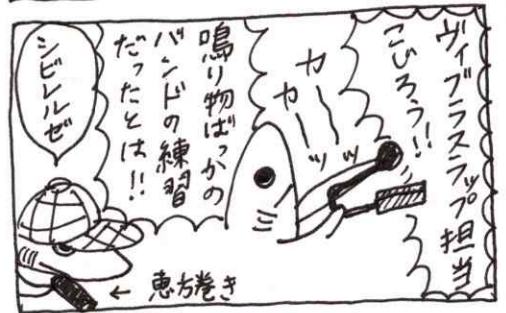 ヴィブラスラップ担当
こじろう!!
カーーッ
カーーッ
鳴り物ばっかの
バンドの練習
だったとは!!
シビレルゼ
← 恵方巻き